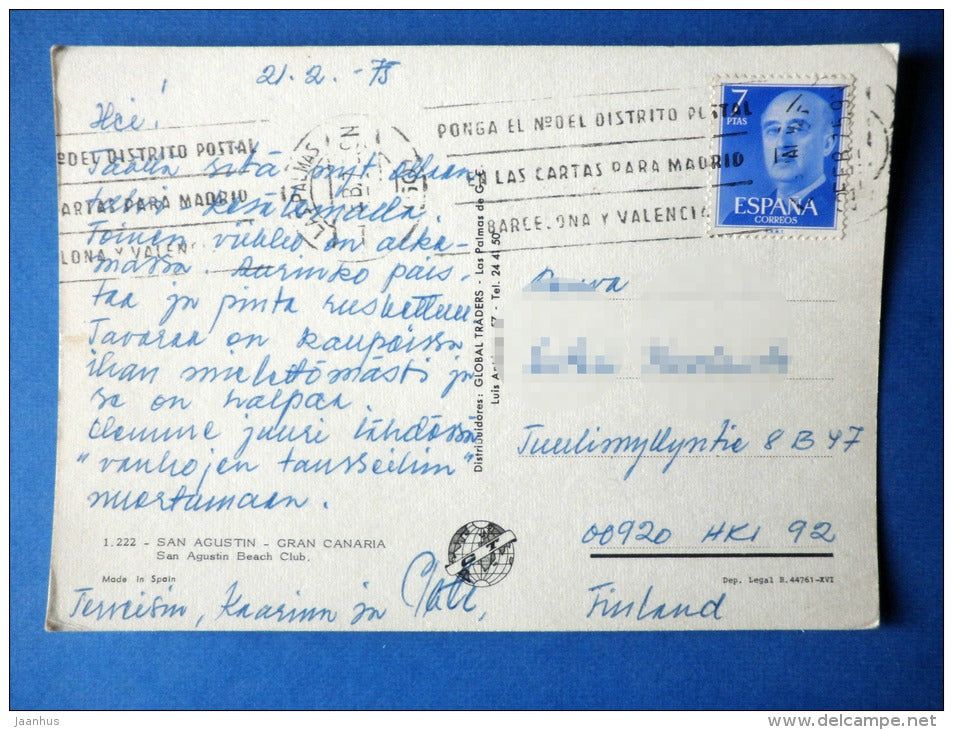 21.2.-75
Hei!
Täällä sitä nyt ollaan
kesälomalla.
Toinen viikko on alka-
massa. Aurinko pais-
taa ja pinta ruskettuu
Tavaraa on kaupoissa
ihan mielettömästi ja
se on halpaa.
Olemme juuri lähdössä
"vanhojen tansseihin"
nuortumaan.
1.222 - SAN AGUSTIN - GRAN CANARIA
San Agustin Beach Club.
Made in Spain
Terveisin, Kaarina ja
Nº DEL DISTRITO POSTAL
CARTAS PARA MADRID
LONA Y VALEN
LAS PALMAS
PONGA EL Nº DEL DISTRITO POSTAL
EN LAS CARTAS PARA MADRID
BARCELONA Y VALENCIA
7
PTAS
ESPAÑA
CORREOS
Distribuidores: GLOBAL TRADERS - Las Palmas de G.C.
57 - Tel. 24 41 50
Tuulimyllyntie 8 B 47
00920 HKI 92
Finland
Dep. Legal B.44761-XVI
Jaanhus
www.delcampe.net